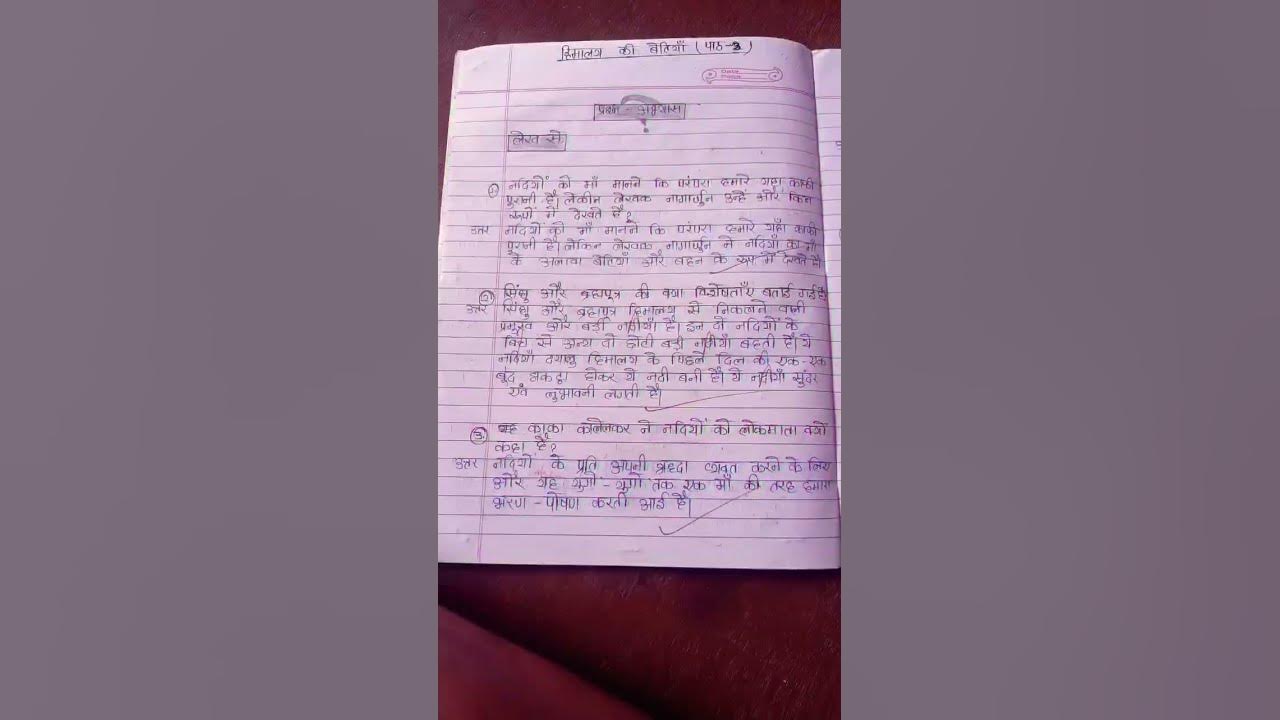 हिमालय की बेटियाँ (पाठ-3)
प्रश्न - अभ्यास
लेख से
1) नदियों को माँ मानने कि परंपरा हमारे यहा काफी
पुरानी है। लेकीन लेखक नागार्जुन उन्हें और किन
रूपों में देखते है?
उत्तर नदियों को माँ मानने कि परंपरा हमारे यहाँ काफी
पुरानी है। लेकिन लेखक नागार्जुन ने नदियाँ को माँ
के अलावा बेटियाँ और बहन के रूप में देखते है।
2) सिंधु और ब्रह्मपुत्र की क्या विशेषताएँ बताई गई है।
उत्तर सिंधु और ब्रह्मपुत्र हिमालय से निकलने वाली
प्रमुख और बड़ी नदीयाँ है। इन दो नदियों के
बिच से अन्य दो छोटी बड़ी नदीयाँ बहती है। ये
नदियाँ दयालु हिमालय के पिघले दिल की एक-एक
बूंद इकट्ठा होकर ये नदी बनी है। ये नदीयाँ सुंदर
एवं लुभावनी लगती है।
3. काका कालेलकर ने नदियों को लोकमाता क्यों
कहा है?
उत्तर नदियों के प्रति अपनी श्रद्धा व्यक्त करने के लिए
और यह युगों-युगों तक एक माँ की तरह हमारा
भरण-पोषण करती आई है।